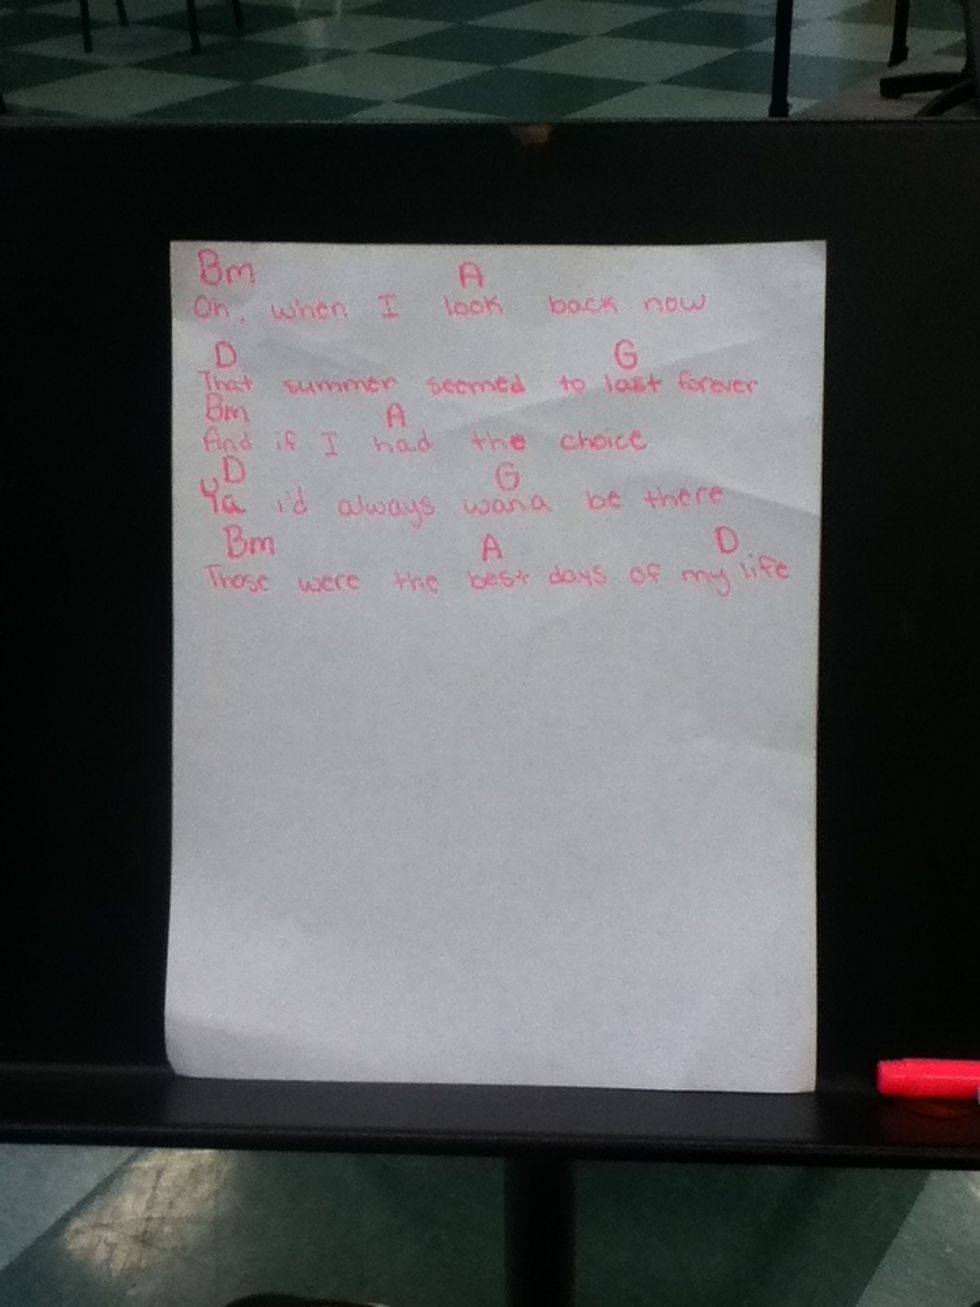 Bm A
Oh, when I look back now
D G
That summer seemed to last forever
Bm A
And if I had the choice
D G
Ya i'd always wana be there
Bm A D
Those were the best days of my life